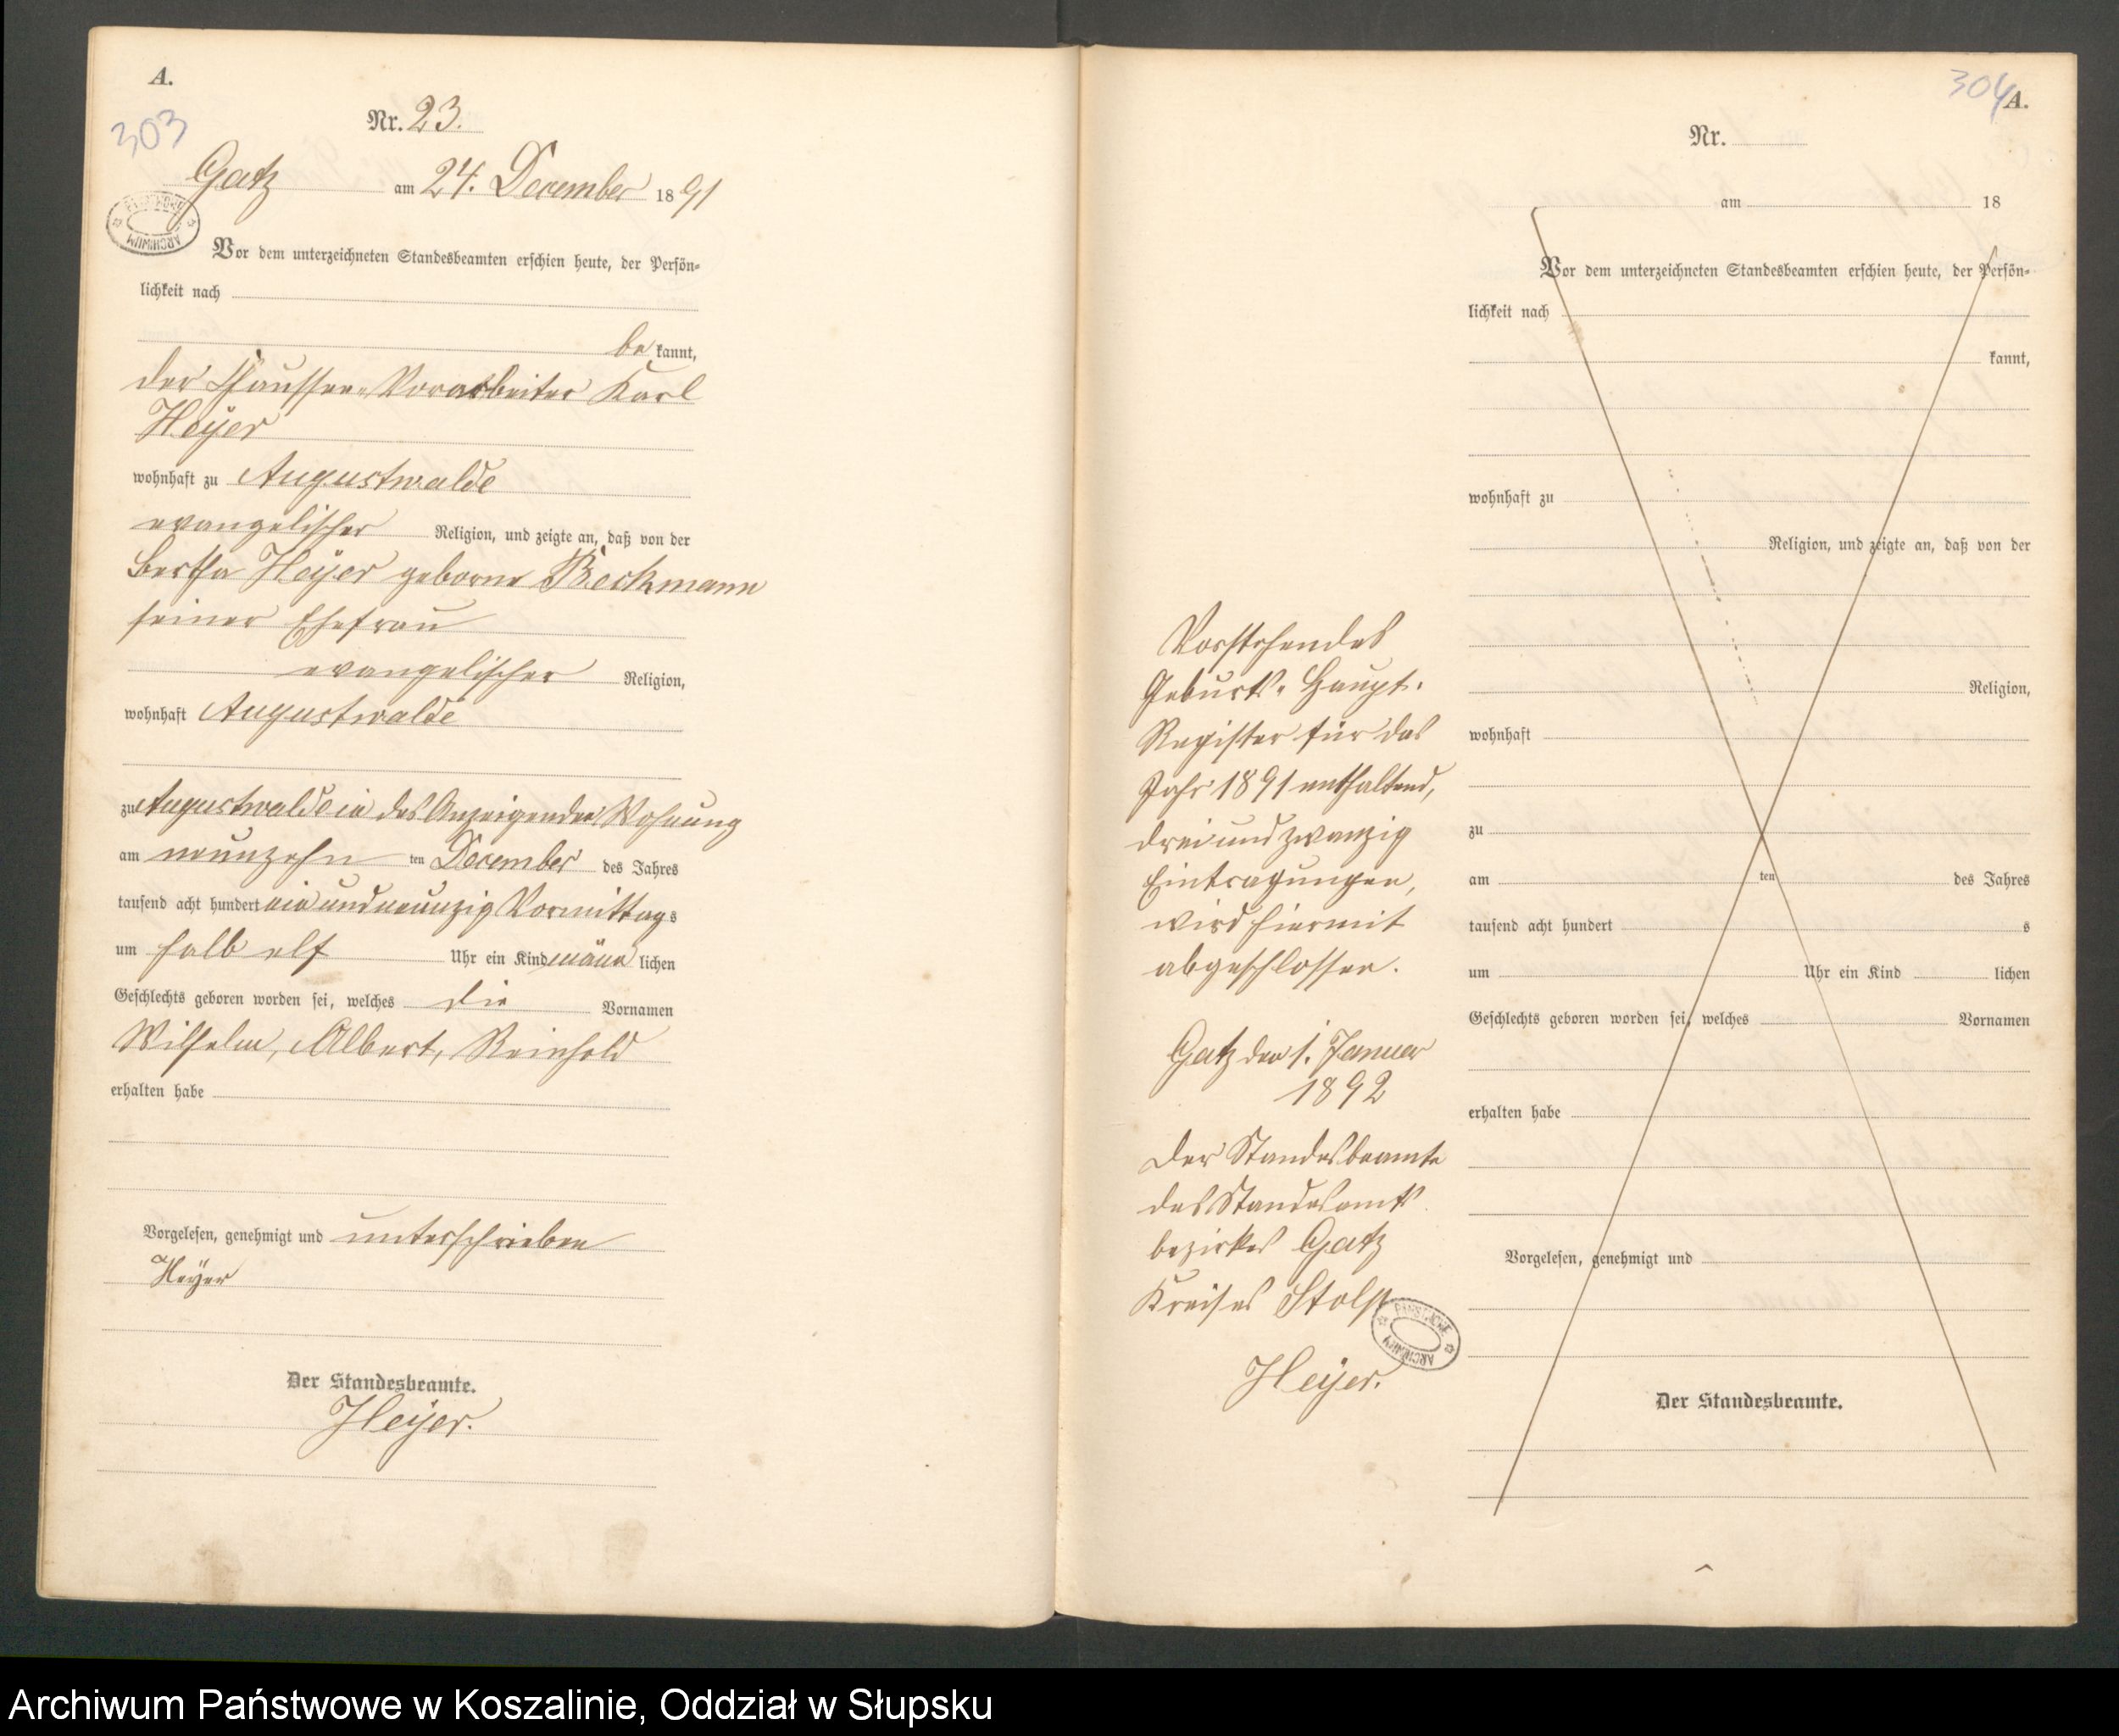 A.
303
Nr. 23.
Gatz am 24. December 1891
Vor dem unterzeichneten Standesbeamten erschien heute, der Persön-
lichkeit nach
be kannt,
der Chaussee-Vorarbeiter Karl
Heyer
wohnhaft zu Augustwalde
evangelischer Religion, und zeigte an, daß von der
Bertha Heyer geborne Beckmann
seiner Ehefrau
evangelischer Religion,
wohnhaft Augustwalde
zu Augustwalde in des Anzeigenden Wohnung
am neunzehn ten December des Jahres
tausend acht hundert ein und neunzig Vormittags
um halb elf Uhr ein Kind männ lichen
Geschlechts geboren worden sei, welches die Vornamen
Wilhelm, Albert, Reinhold
erhalten habe
Vorgelesen, genehmigt und unterschrieben
Heyer
Der Standesbeamte.
Heyer.
ARCHIWUM
Vorstehendes
Geburts-Haupt-
Register für das
Jahr 1891 enthaltend,
drei und zwanzig
Eintragungen,
wird hiermit
abgeschlossen.
Gatz den 1. Januar
1892
Der Standesbeamte
des Standesamts
bezirkes Gatz
Kreises Stolp
Heyer.
PAŃSTWOWE ARCHIWUM
304
A.
Nr.
am 18
Vor dem unterzeichneten Standesbeamten erschien heute, der Persön-
lichkeit nach
kannt,
wohnhaft zu
Religion, und zeigte an, daß von der
Religion,
wohnhaft
zu
am ten des Jahres
tausend acht hundert s
um Uhr ein Kind lichen
Geschlechts geboren worden sei, welches Vornamen
erhalten habe
Vorgelesen, genehmigt und
Der Standesbeamte.
Archiwum Państwowe w Koszalinie, Oddział w Słupsku